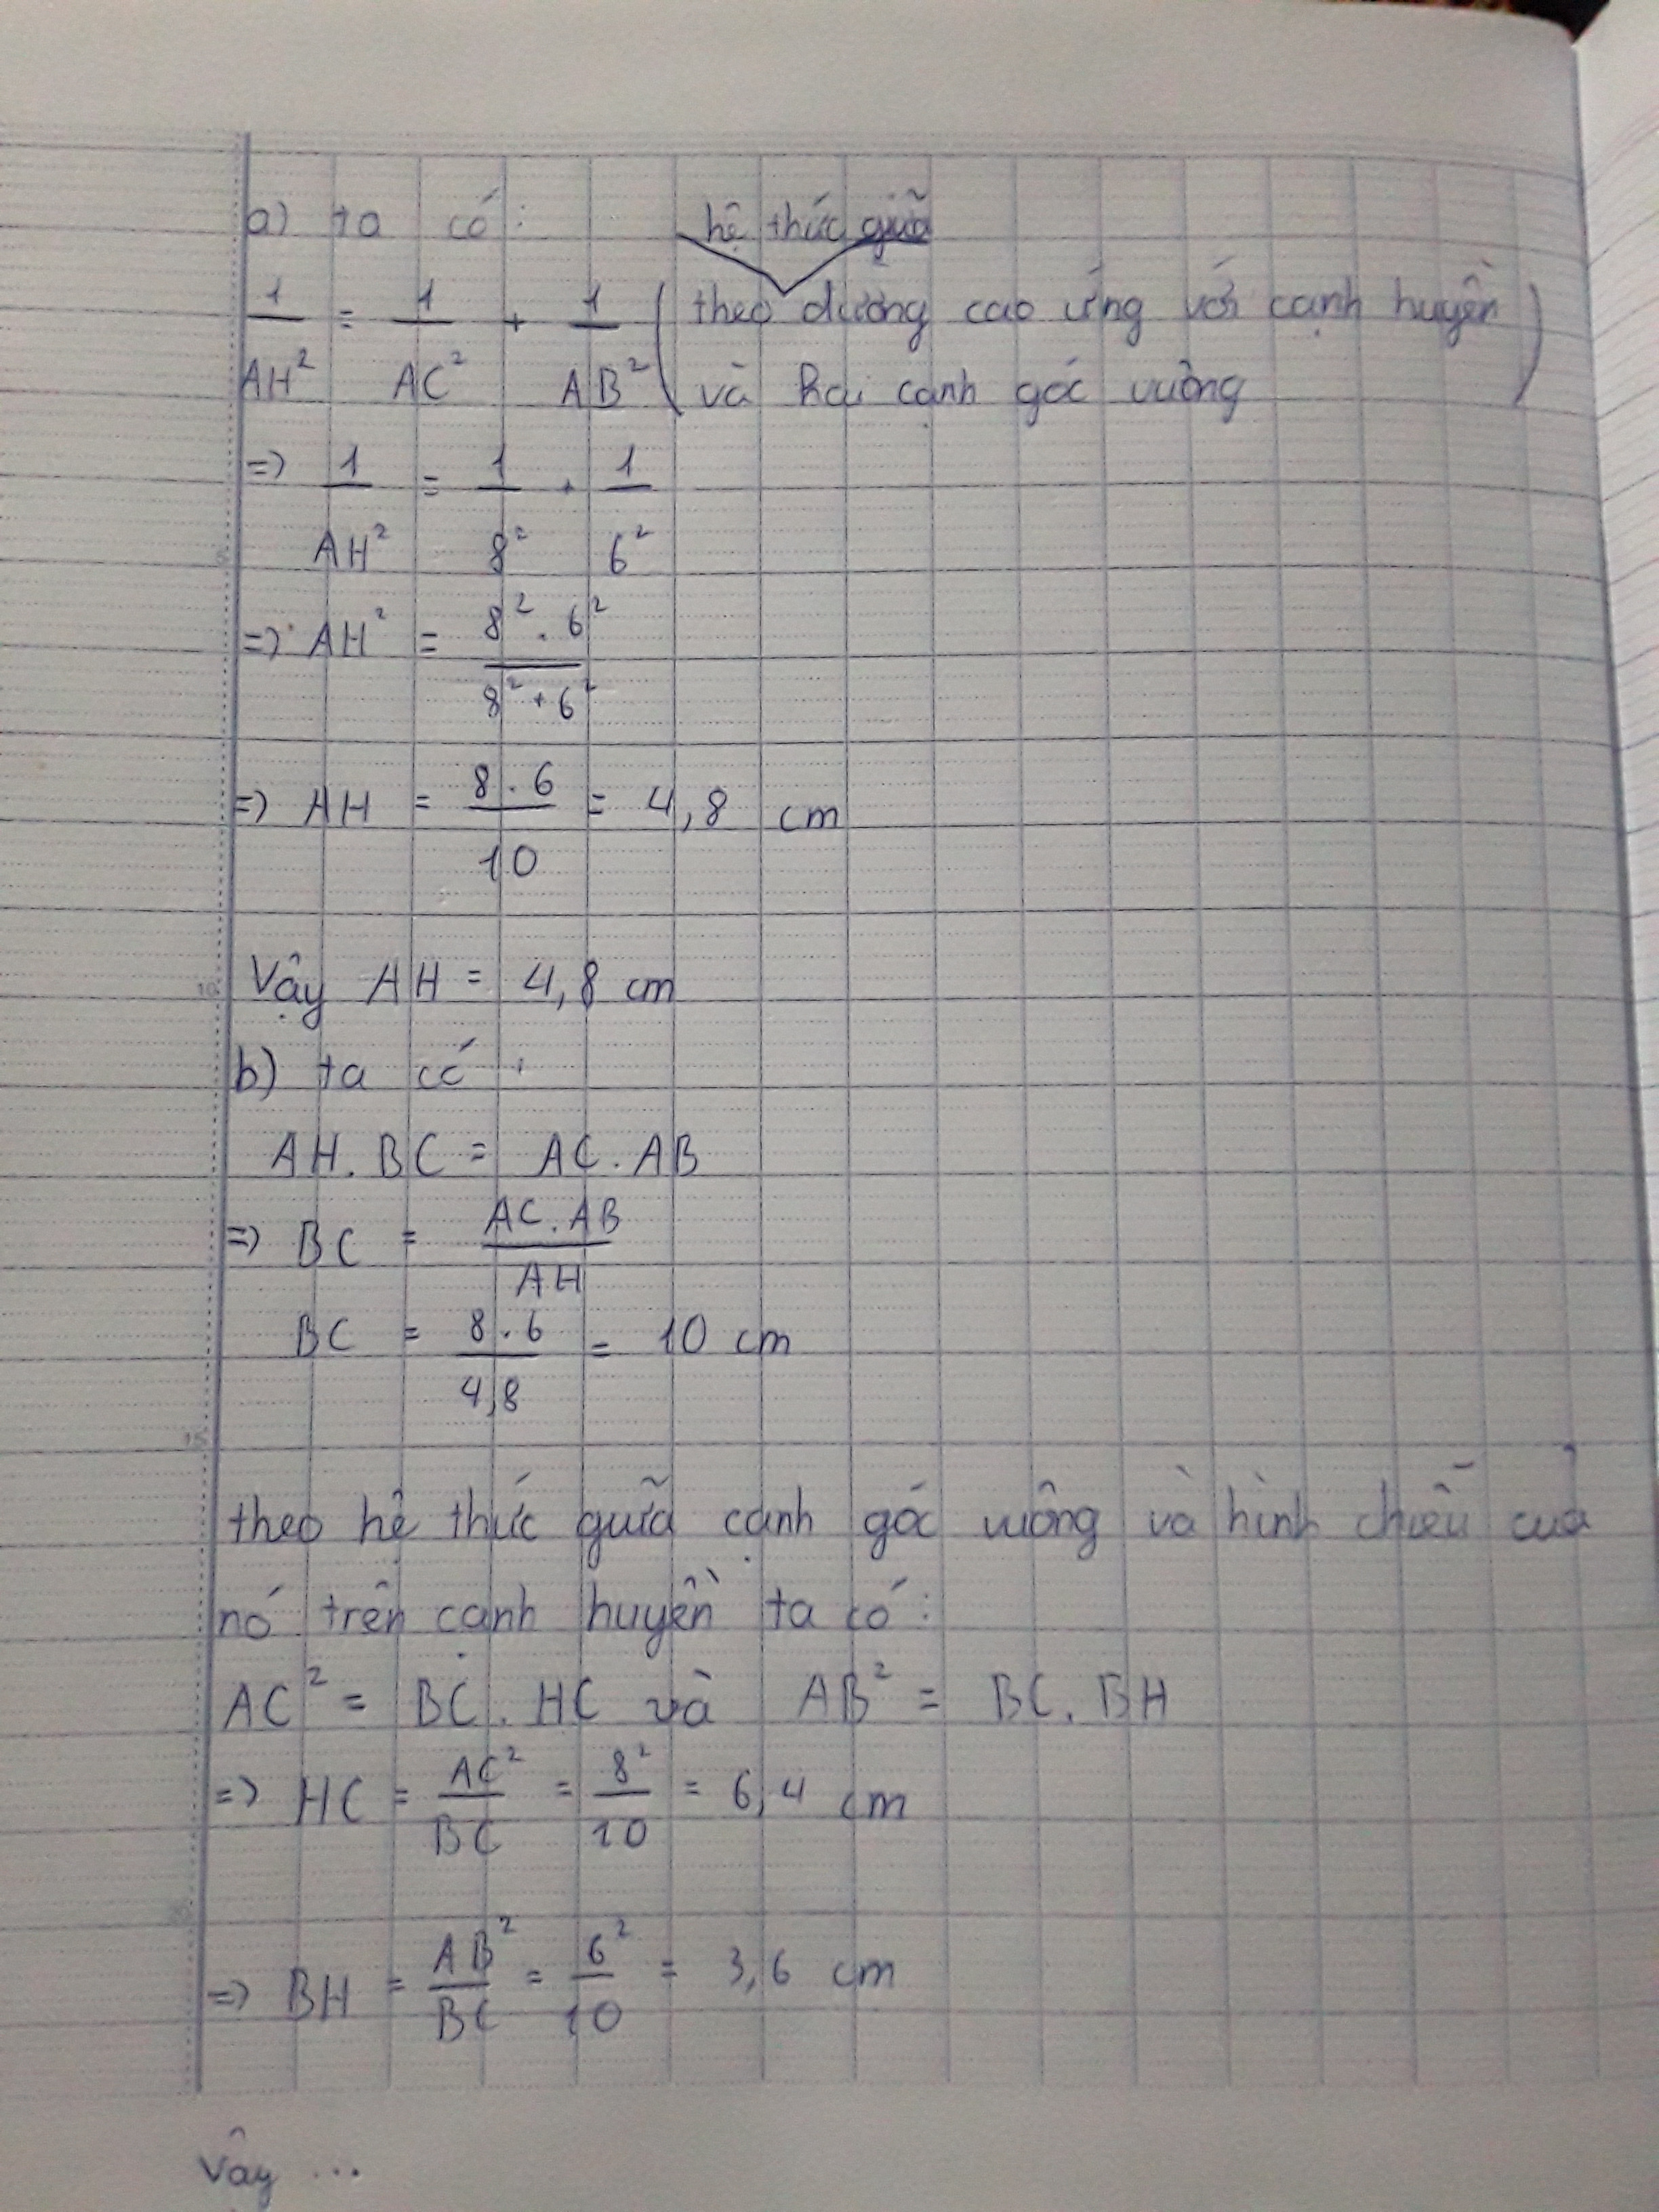 a) ta có: hệ thức giữa
1/AH² = 1/AC² + 1/AB² (theo đường cao ứng với cạnh huyền
và hai cạnh góc vuông)
=> 1/AH² = 1/8² + 1/6²
=> AH² = 8² . 6² / 8² + 6²
=> AH = 8 . 6 / 10 = 4,8 cm
Vậy AH = 4,8 cm
b) ta có :
AH . BC = AC . AB
=> BC = AC . AB / AH
BC = 8 . 6 / 4,8 = 10 cm
theo hệ thức giữa cạnh góc vuông và hình chiếu của
nó trên cạnh huyền ta có :
AC² = BC . HC và AB² = BC . BH
=> HC = AC²/BC = 8²/10 = 6,4 cm
=> BH = AB²/BC = 6²/10 = 3,6 cm
Vậy ...
5
10
15
20